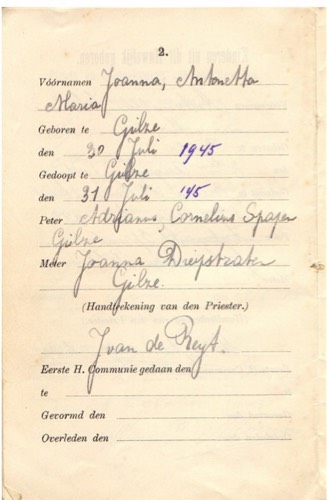 2.
Vóórnamen Joanna, Antonetta
Maria
Geboren te Gilze
den 30 Juli 1945
Gedoopt te Gilze
den 31 Juli '45
Peter Adrianus, Cornelius Spapen
Gilze
Meter Joanna Diepstraten
Gilze.
(Handteekening van den Priester.)
J van de Reyt.
Eerste H. Communie gedaan den
te
Gevormd den
Overleden den